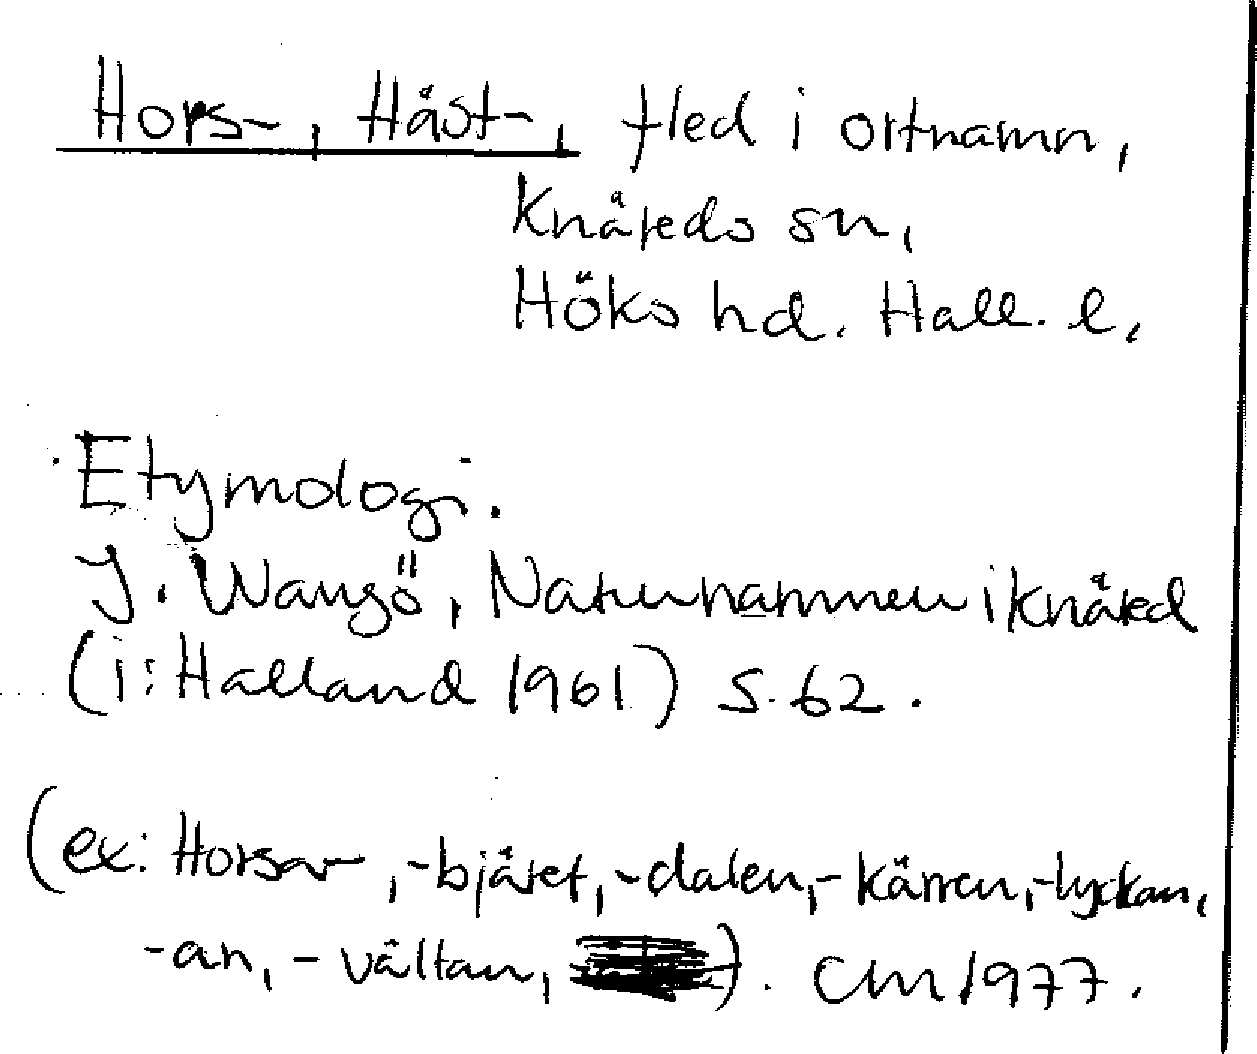 Hors-, Häst-, fled i ortnamn,
Knäreds sn,
Höks hd. Hall. l.
Etymologi.
J. Wangö, Naturnamnen i Knäred
(i: Halland 1961) s. 62.
(ex: Horsa-, -bjäret, -dalen, -kärren, -lyckan,
-an, -vältan, ). CM 1977.